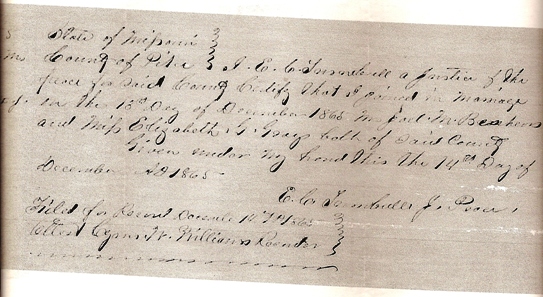 State of Missouri
County of Pike I. E. C. Turnbull a Justice of the
peace for said County Certify that I joined in marriage
on the 13th Day of December 1865 Mr M.
and Miss Elizabeth G. Grays both of said County
Given under my hand this the 14th Day of
December AD 1865
E C Turnbull J. Peace
Filed for Record 1865
Attest Cyrus W. Williams Recorder